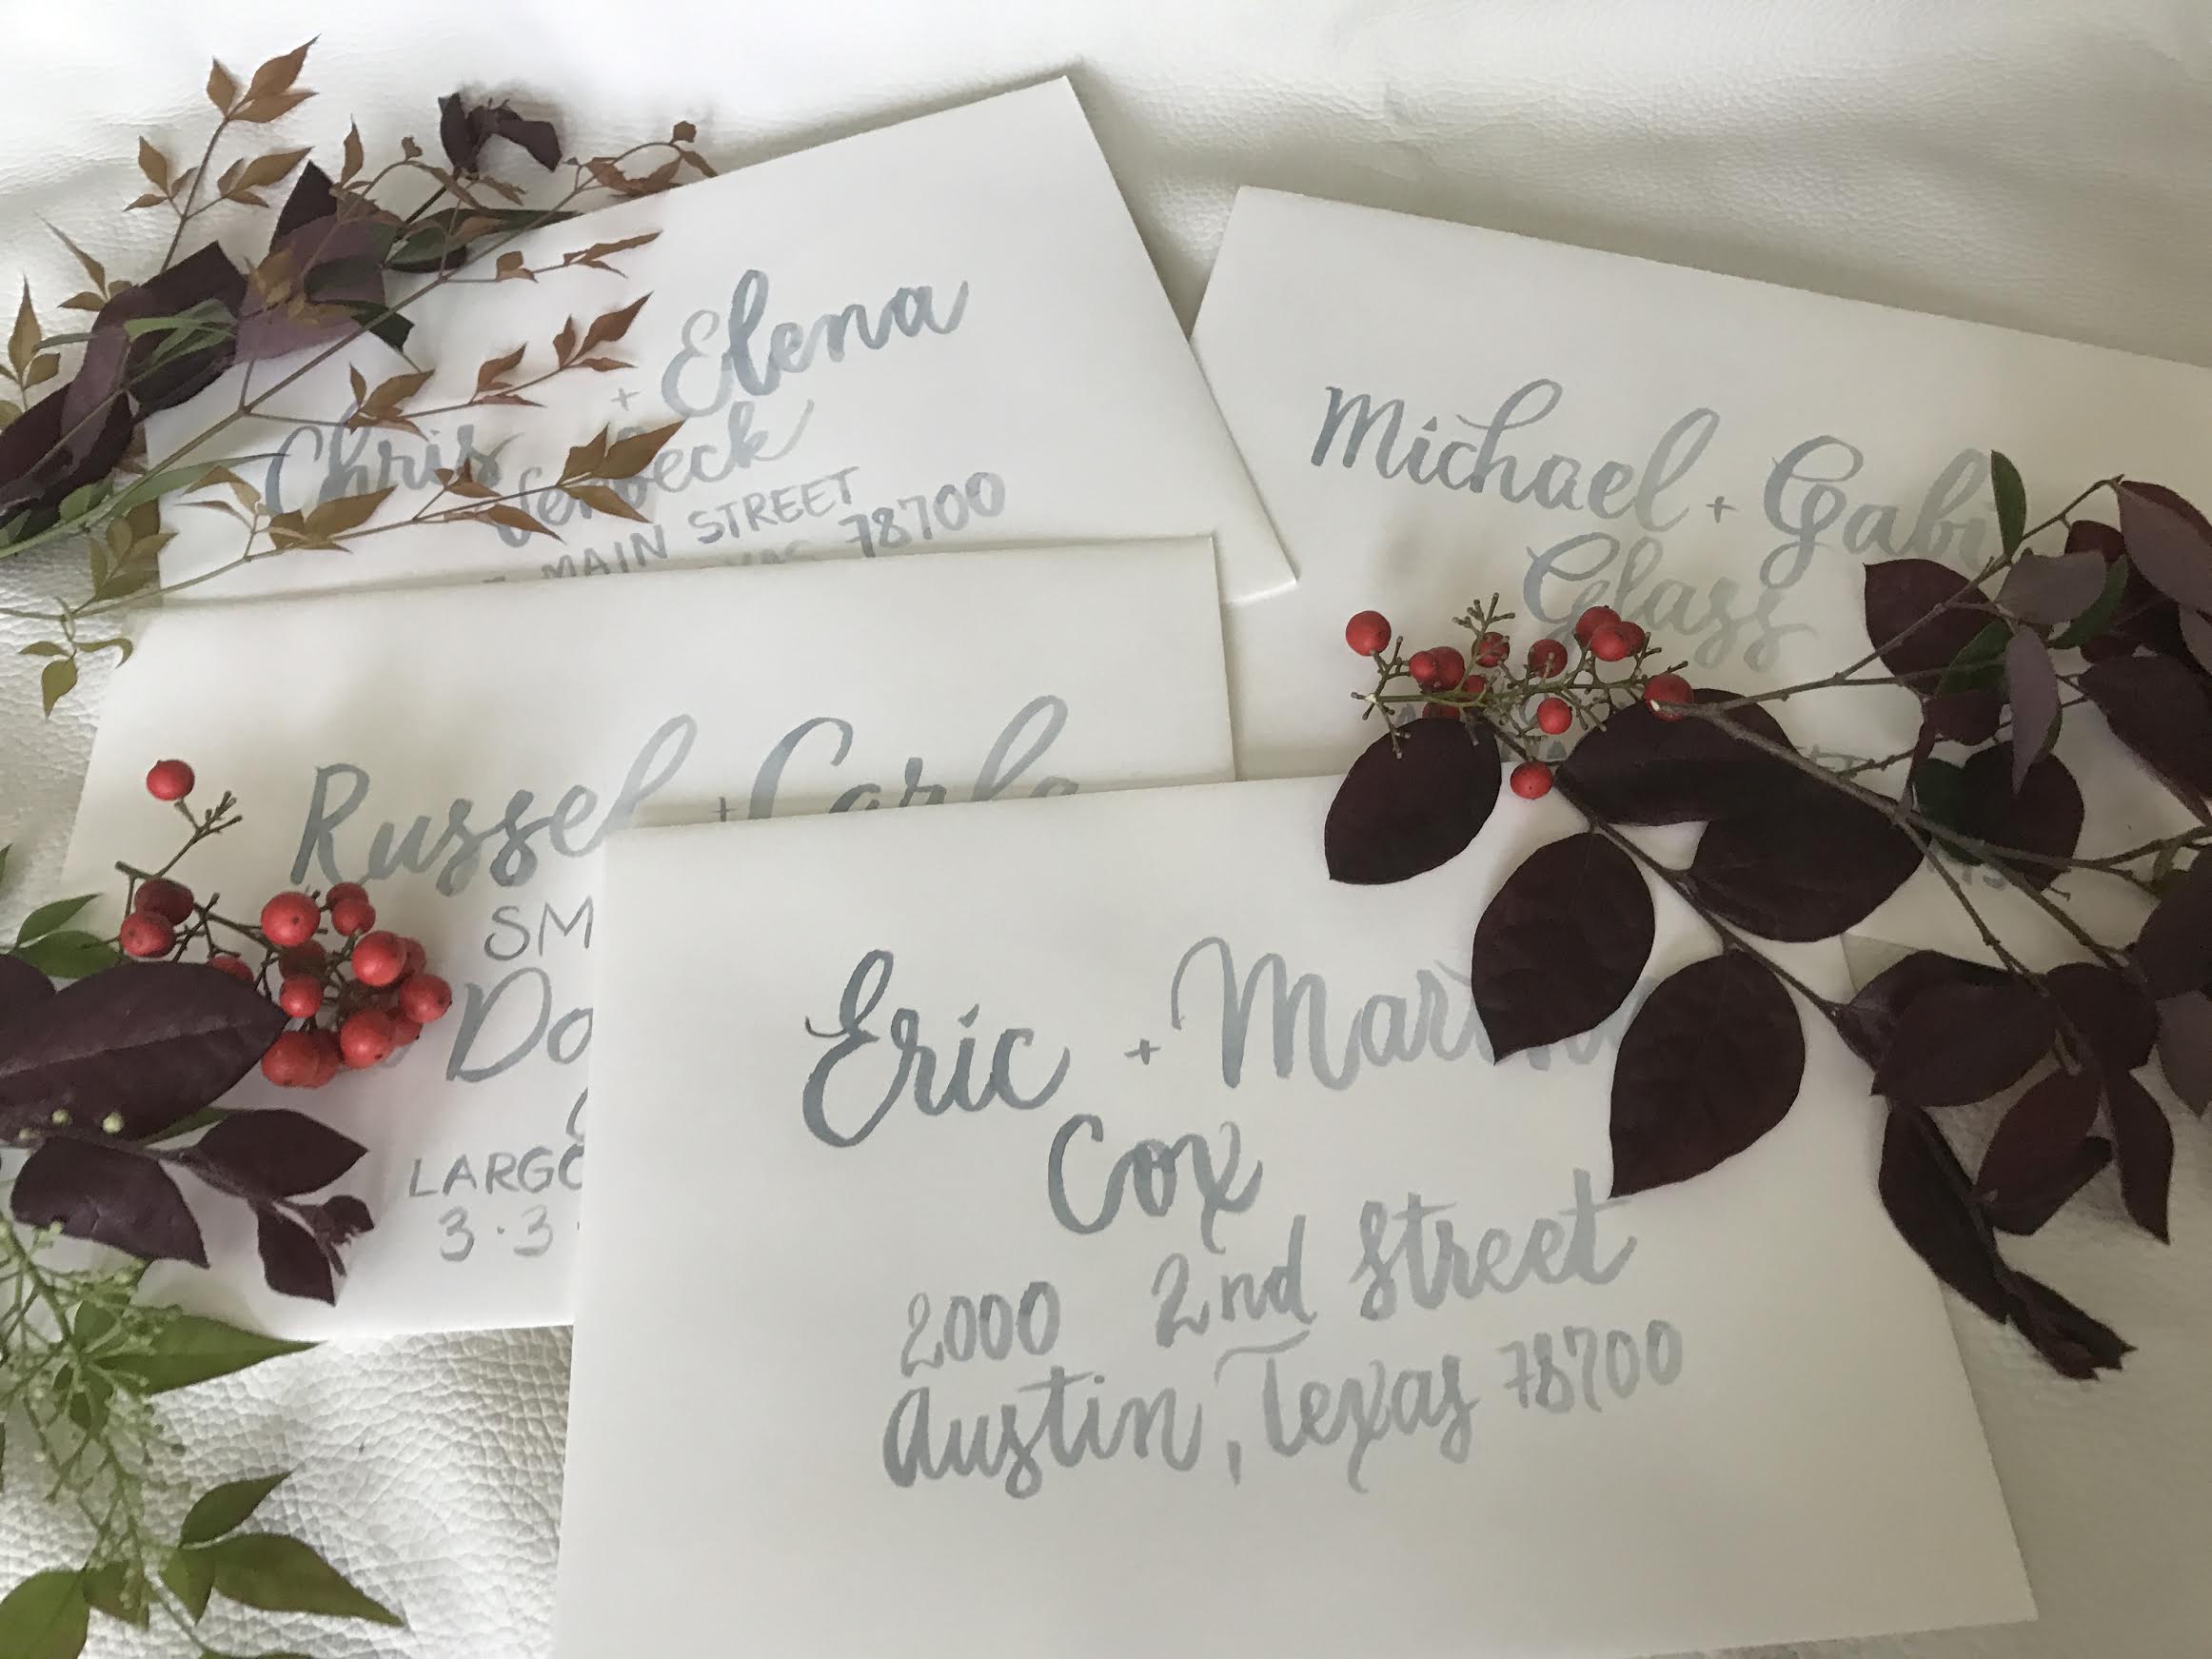 + Elena
Chris
Verbeck
MAIN STREET
78700
Michael + Gabi
Glass
Russel + Carla
SM
Do
LARGO
3.3
Eric +
Cox
2000 2nd Street
Austin, Texas 78700